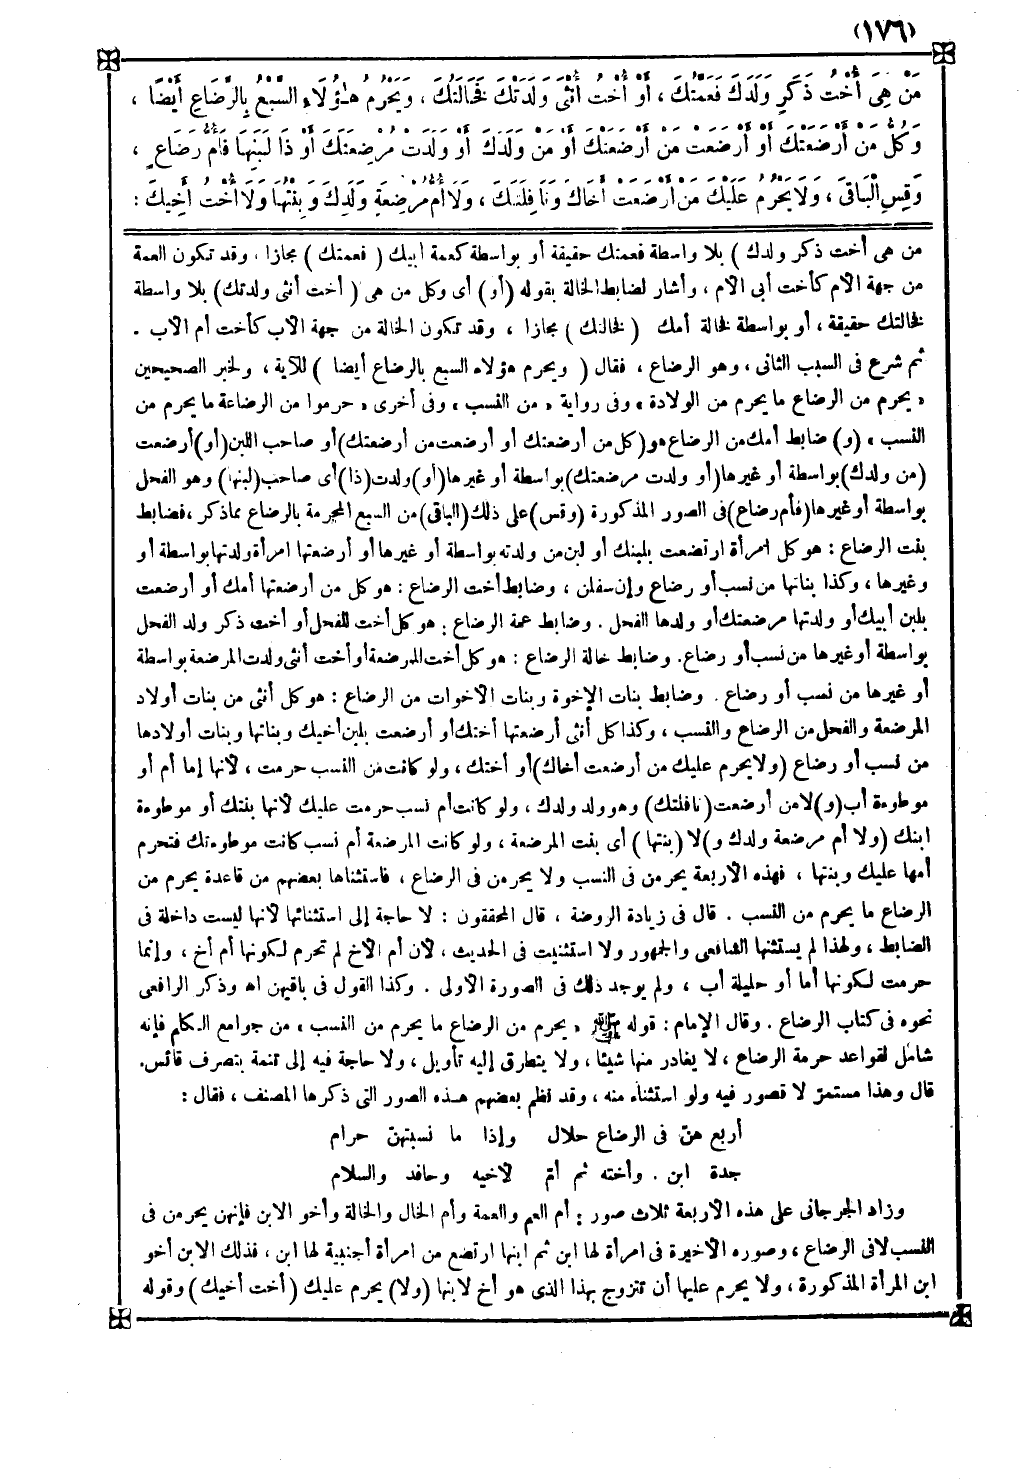 (١٧٦)
مَنْ هِىَ أُخْتُ ذَكَرٍ وَلَدَكَ فَعَمَّتُكَ ، أَوْ أُخْتُ أُنْثَى وَلَدَتْكَ فَخَالَتُكَ ، وَيَحْرُمُ هٰؤُلَاءِ السَّبْعُ بِالرَّضَاعِ أَيْضًا ،
وَكُلُّ مَنْ أَرْضَعَتْكَ أَوْ أَرْضَعَتْ مَنْ أَرْضَعَتْكَ أَوْ مَنْ وَلَدَكَ أَوْ وَلَدَتْ مُرْضِعَتَكَ أَوْ ذَا لَبَنِهَا فَأُمُّ رَضَاعٍ ،
وَقِسِ الْبَاقِىَ ، وَلَا يَحْرُمُ عَلَيْكَ مَنْ أَرْضَعَتْ أَخَاكَ وَنَافِلَتَكَ ، وَلَا أُمُّ مُرْضِعَةِ وَلَدِكَ وَبِنْتُهَا وَلَا أُخْتُ أَخِيكَ :
من هى أخت ذكر ولدك ) بلا واسطة فعمتك حقيقة أو بواسطة كعمة أبيك ( فعمتك ) مجازا ، وقد تكون العمة
من جهة الأم كأخت أبى الأم ، وأشار لضابط الخالة بقوله (أو) أى وكل من هى ( أخت أنثى ولدتك) بلا واسطة
فخالتك حقيقة ، أو بواسطة فخالة أمك ( فخالتك ) مجازا ، وقد تكون الخالة من جهة الأب كأخت أم الأب .
ثم شرع فى السبب الثانى ، وهو الرضاع ، فقال ( ويحرم هؤلاء السبع بالرضاع أيضا ) للآية ، ولخبر الصحيحين
« يحرم من الرضاع ما يحرم من الولادة » وفى رواية « من النسب » وفى أخرى « حرموا من الرضاعة ما يحرم من
النسب » (و) ضابط أمك من الرضاع هو (كل من أرضعتك أو أرضعت من أرضعتك) أو صاحب اللبن (أو) أرضعت
(من ولدك) بواسطة أو غيرها (أو ولدت مرضعتك) بواسطة أو غيرها (أو) ولدت (ذا) أى صاحب (لبنها) وهو الفحل
بواسطة أو غيرها (فأم رضاع) فى الصور المذكورة (وقس) على ذلك (الباقى) من السبع المحرمة بالرضاع بما ذكر ، فضابط
بنت الرضاع : هو كل امرأة ارتضعت بلبنك أو لبن من ولدته بواسطة أو غيرها أو أرضعتها امرأة ولدتها بواسطة أو
وغيرها ، وكذا بناتها من نسب أو رضاع وإن سفلن ، وضابط أخت الرضاع : هو كل من أرضعتها أمك أو أرضعت
بلبن أبيك أو ولدتها مرضعتك أو ولدها الفحل . وضابط عمة الرضاع : هو كل أخت للفحل أو أخت ذكر ولد الفحل
بواسطة أو غيرها من نسب أو رضاع. وضابط خالة الرضاع : هو كل أخت المرضعة أو أخت أنثى ولدت المرضعة بواسطة
أو غيرها من نسب أو رضاع . وضابط بنات الإخوة وبنات الأخوات من الرضاع : هو كل أنثى من بنات أولاد
المرضعة والفحل من الرضاع والنسب ، وكذا كل أنثى أرضعتها أختك أو أرضعت بلبن أخيك وبناتها وبنات أولادها
من نسب أو رضاع (ولا يحرم عليك من أرضعت أخاك) أو أختك ، ولو كانت من النسب حرمت ، لأنها إما أم أو
موطوءة أب (و) لا من أرضعت (نافلتك) وهو ولد ولدك ، ولو كانت أم نسب حرمت عليك لأنها بنتك أو موطوءة
ابنك (ولا أم مرضعة ولدك و) لا (بنتها) أى بنت المرضعة ، ولو كانت المرضعة أم نسب كانت موطوءتك فتحرم
أمها عليك وبنتها ، فهذه الأربعة يحرمن فى النسب ولا يحرمن فى الرضاع ، فاستثناها بعضهم من قاعدة يحرم من
الرضاع ما يحرم من النسب . قال فى زيادة الروضة ، قال المحققون : لا حاجة إلى استثنائها لأنها ليست داخلة فى
الضابط ، ولهذا لم يستثنها الشافعى والجمهور ولا استثنيت فى الحديث ، لأن أم الأخ لم تحرم لكونها أم أخ ، وإنما
حرمت لكونها أما أو حليلة أب ، ولم يوجد ذلك فى الصورة الأولى . وكذا القول فى باقيهن اه وذكر الرافعى
نحوه فى كتاب الرضاع . وقال الإمام : قوله ﷺ « يحرم من الرضاع ما يحرم من النسب » من جوامع الكلم فإنه
شامل لقواعد حرمة الرضاع ، لا يغادر منها شيئا ، ولا يتطرق إليه تأويل ، ولا حاجة فيه إلى تتمة بتصرف قائس.
قال وهذا مستمر لا قصور فيه ولو استثناء منه ، وقد نظم بعضهم هذه الصور التى ذكرها المصنف ، فقال :
أربع هن فى الرضاع حلال وإذا ما نسبتهن حرام
جدة ابن . وأخته ثم أم لأخيه وحافد والسلام
وزاد الجرجانى على هذه الأربعة ثلاث صور : أم العم والعمة وأم الخال والخالة وأخو الابن فإنهن يحرمن فى
النسب لا فى الرضاع ، وصوره الأخيرة فى امرأة لها ابن ثم ابنها ارتضع من امرأة أجنبية لها ابن ، فذلك الابن أخو
ابن المرأة المذكورة ، ولا يحرم عليها أن تتزوج بهذا الذى هو أخ لابنها (ولا) يحرم عليك (أخت أخيك) وقوله